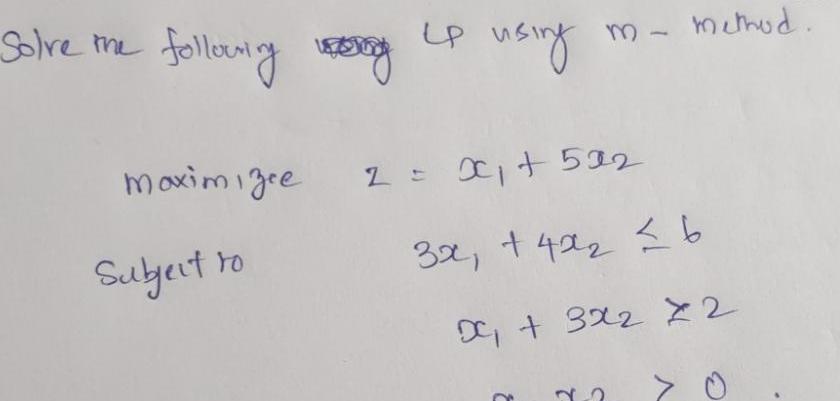 Solve the following LP using m - method.
maximizee z = x₁ + 5x₂
Subject to 3x₁ + 4x₂ ≤ 6
x₁ + 3x₂ ≥ 2
x₂ > 0 .